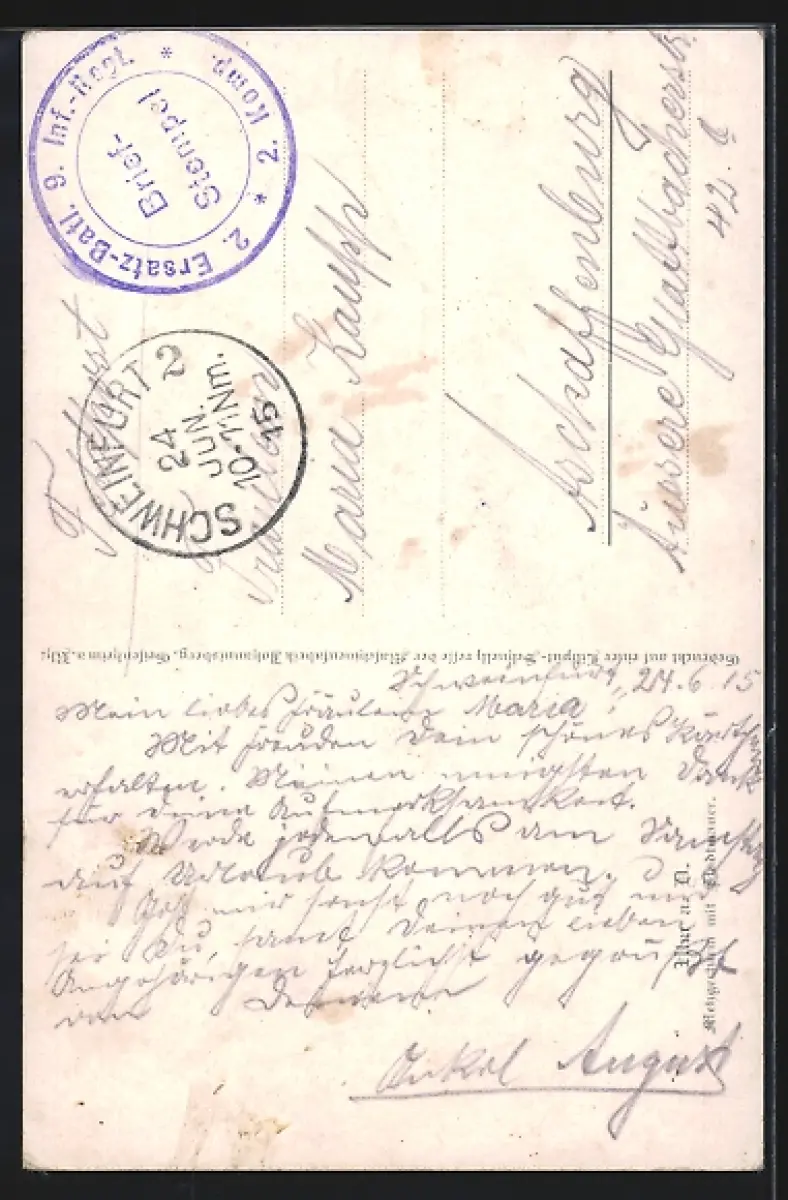 2. Ersatz-Batl. 9. Inf.-Regt. * 2. Komp. *
Brief-
Stempel
SCHWEINFURT 2
24
JUN.
10-11 Nm.
15
Feldpost
Fräulein
Maria Kaupp
Aschaffenburg
Äussere Glattbacherstr.
42.
Gedruckt auf einer Liliput-Schnellpresse der Maschinenfabrik Johannisberg, Geisenheim a. Rh.
Schweinfurt, 24.6.15
Mein liebes Fräulein Maria!
Mit Freuden Dein schönes Kärtchen
erhalten. Meinen innigsten Dank
für Deine Aufmerksamkeit.
Werde jedenfalls am Samstag
auf Urlaub kommen.
Geht mir sonst noch gut und
sei Du, samt Deinen lieben
Angehörigen herzlichst gegrüßt
von Deinem
Onkel August
Ulm a. D.
Metzgerturm mit Stadtmauer.